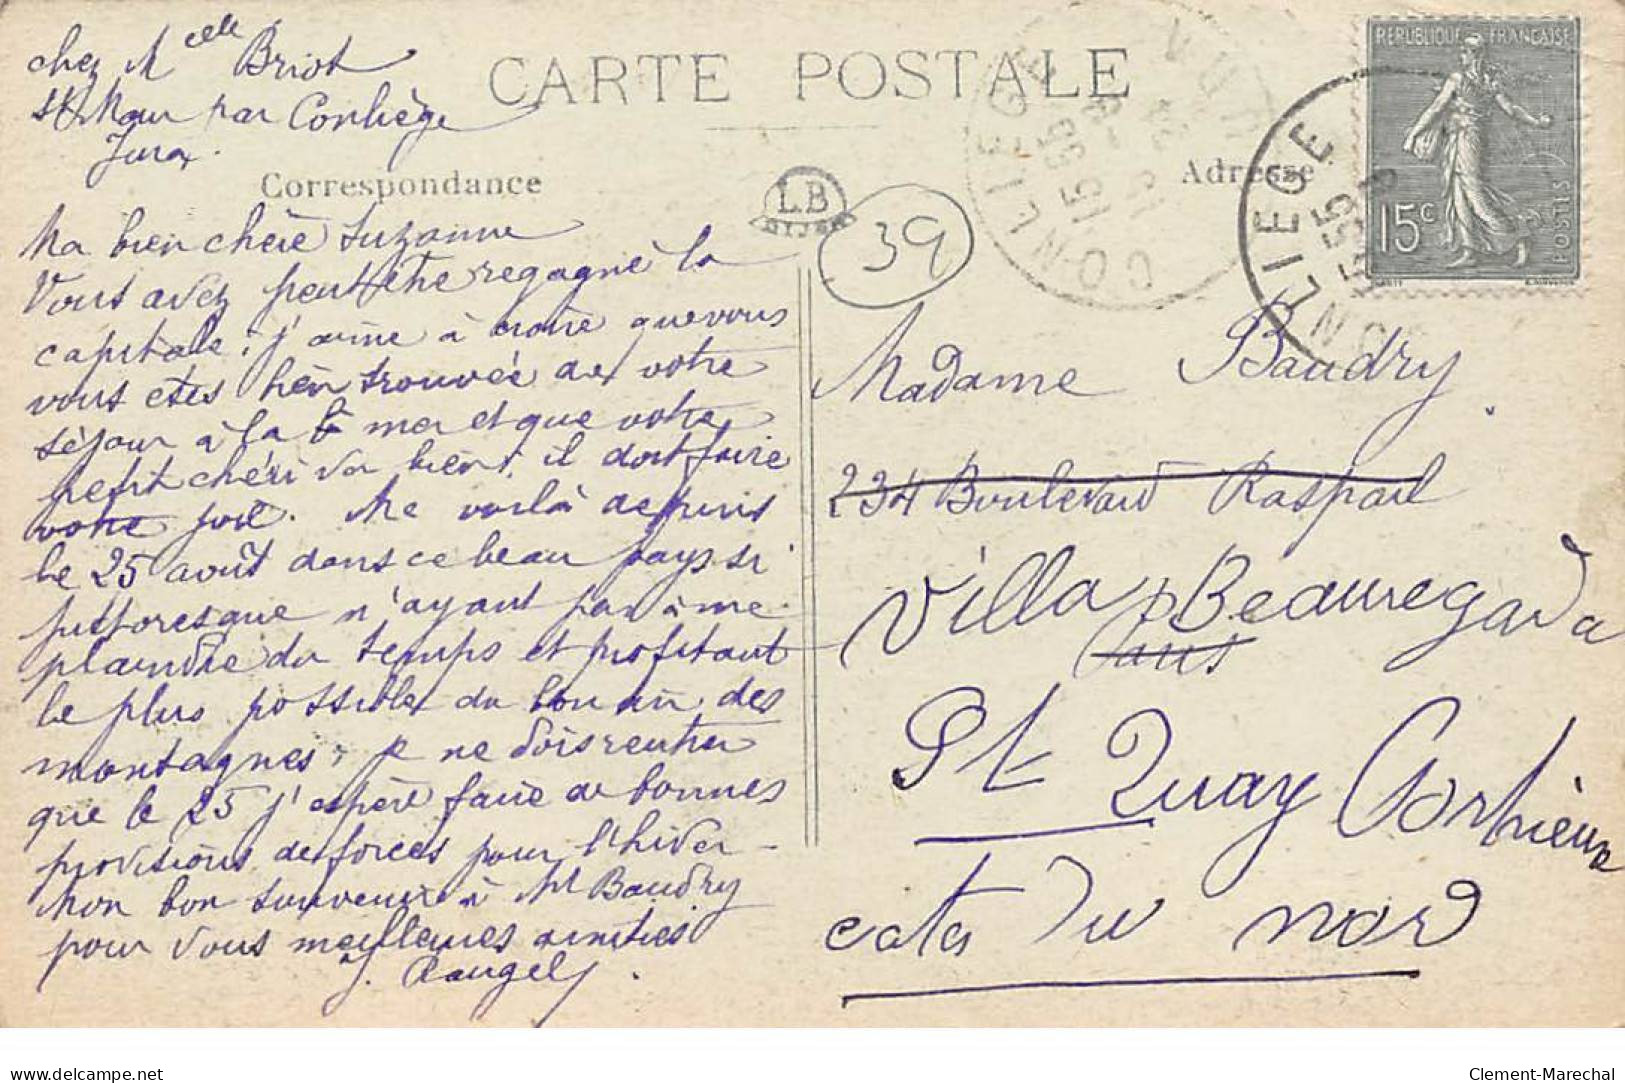 chez Mcelle Briot
St Maur par Conliège
Jura.
CARTE POSTALE
Correspondance
Adresse
LB
DIJON
39
CONLIEGE
JURA
15
CONLIEGE
REPUBLIQUE FRANÇAISE
15c
POSTES
Ma bien chère Suzanne
Vous avez peut-être regagné la
capitale ; j'aime à croire que vous
vous êtes bien trouvée de votre
séjour à la mer et que votre
petit chéri va bien, il doit faire
votre joie. Me voilà depuis
le 25 août dans ce beau pays si
pittoresque n'ayant pas à me
plaindre du temps et profitant
le plus possible du bon air des
montagnes ; je ne dois rentrer
que le 25 j'espère faire de bonnes
provisions de forces pour l'hiver –
Mon bon souvenir à Mr Baudry
pour vous meilleures amitiés
J. Rangely.
Madame Baudry
234 Boulevard Raspail
Villa Beauregard
Paris
St Quay Portrieux
cotes du nord
www.delcampe.net
Clement-Marechal